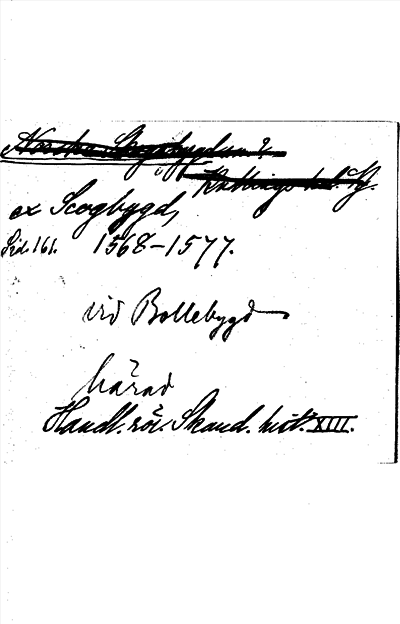 Norska Skogsbygden ?
Kullings hd. Vg.
ex Scogbygd,
Sid. 161. 1568-1577.
vid Bollebygd
härad
Handl. rör. Skand. hist. XIII.